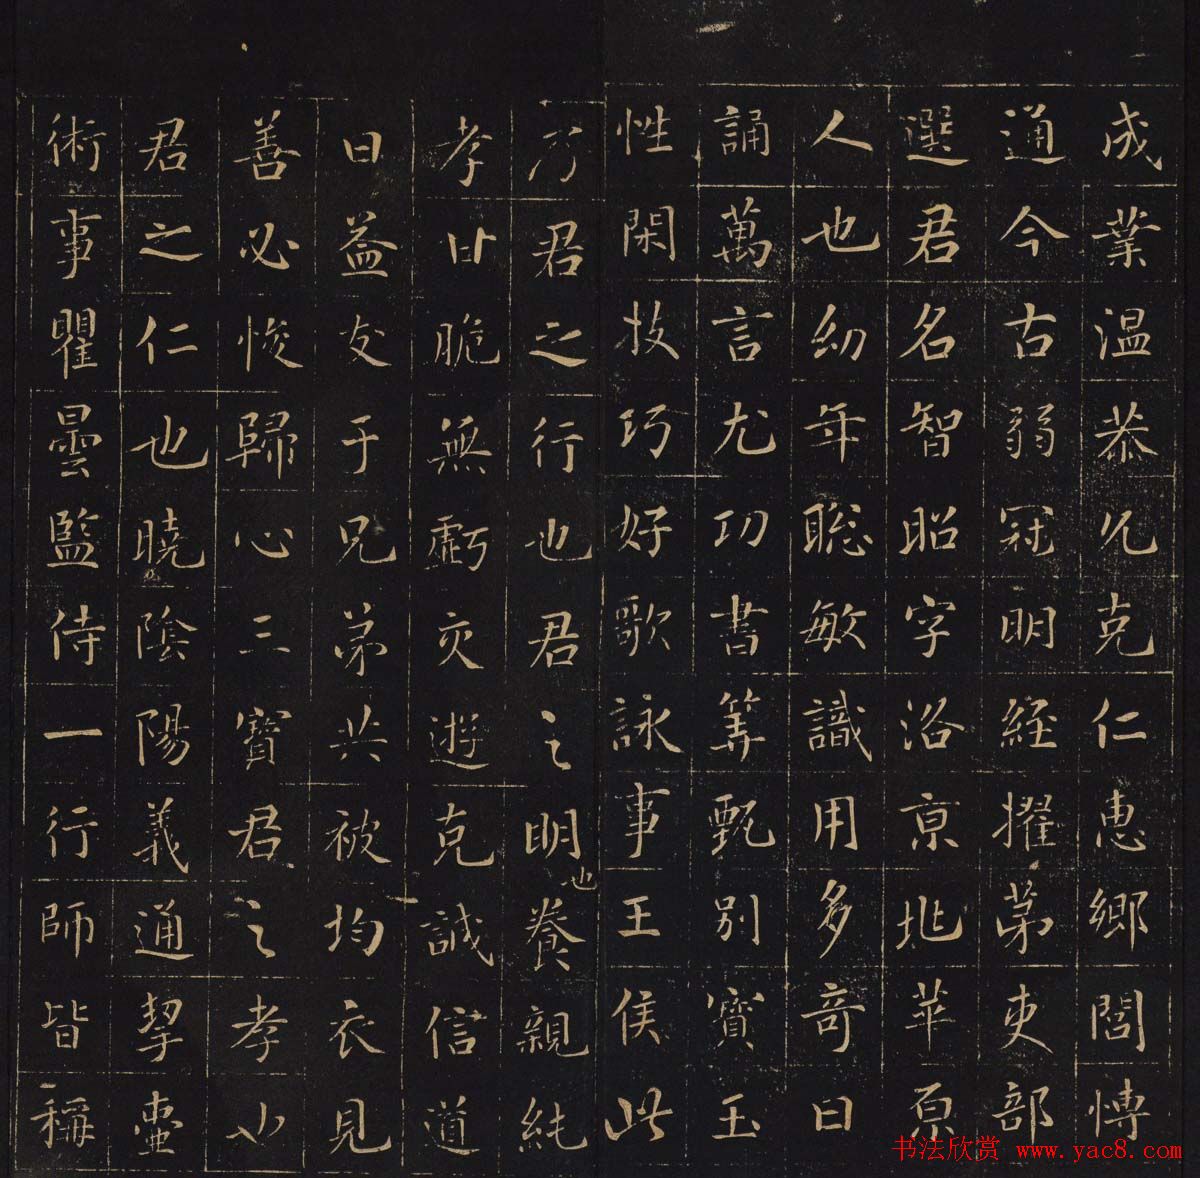 成業温恭允克仁惠鄉閭愽
通今古弱冠明經擢第吏部
選君名智昭字洛京兆華原
人也幼年聰敏識用多奇日
誦萬言尤功書筭甄別寶玉
性閑技巧好歌詠事王侯此
乃君之行也君之明也養親純
孝甘脆無虧交遊克誠信道
日益友于兄弟共被均衣見
善必悛歸心三寶君之孝也
君之仁也曉陰陽義通挈壺
術事瞿曇監侍一行師皆稱
书法欣赏 www.yac8.com